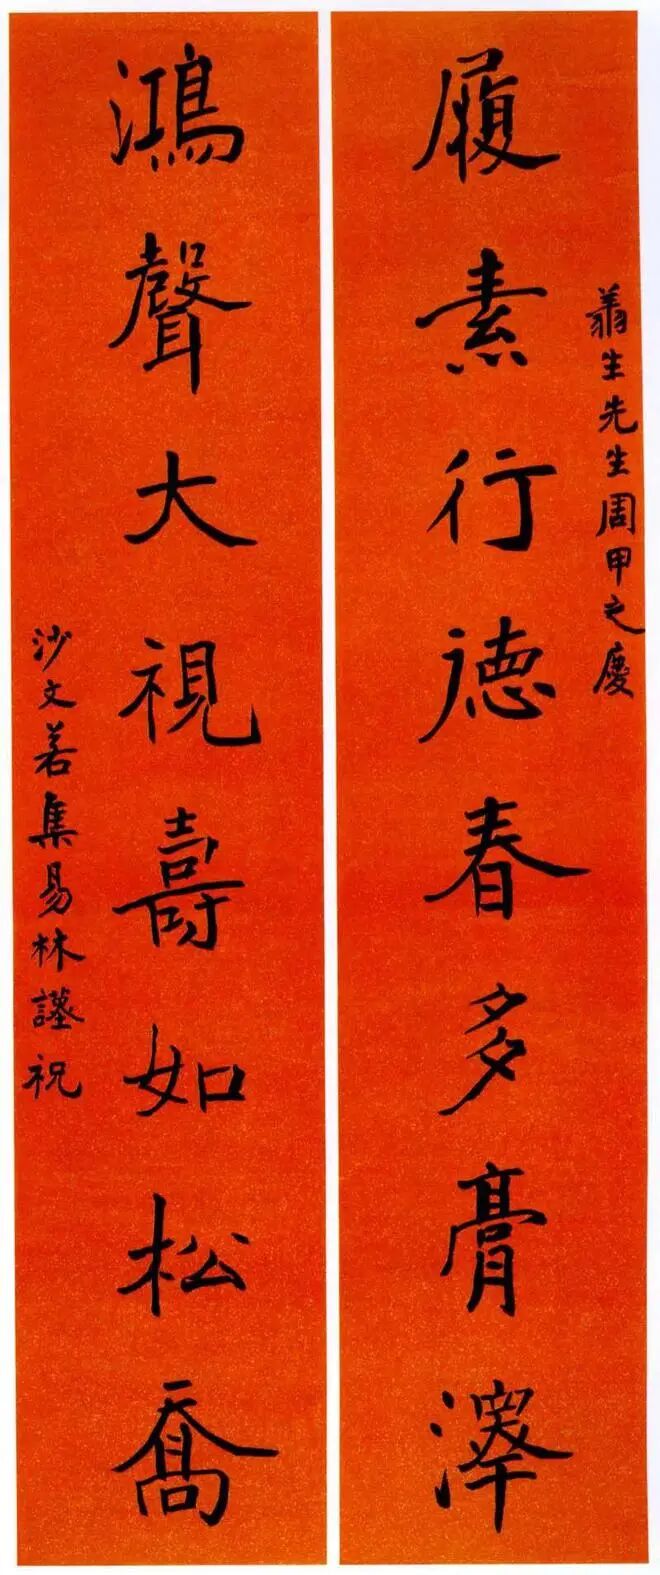 翁生先生周甲之慶
履素行德春多膏澤
鴻聲大視壽如松喬
沙文若集易林謹祝